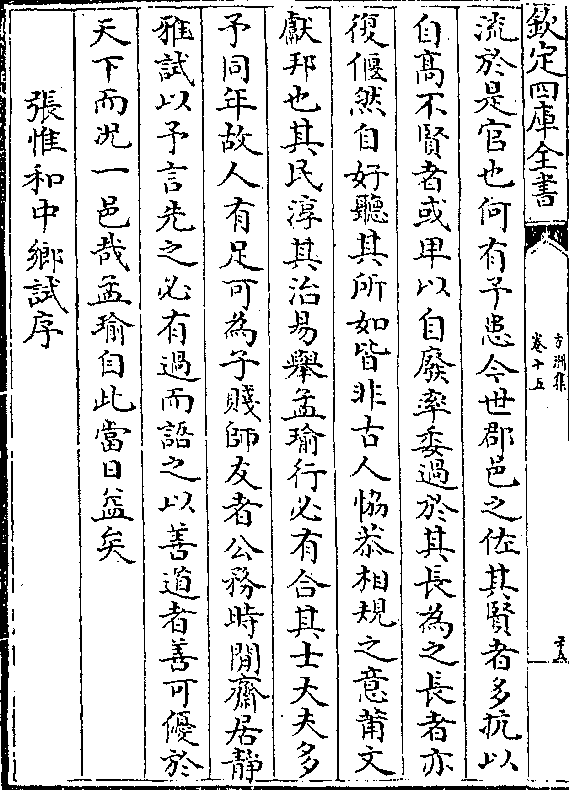 欽定四庫全書
方洲集
卷十五
流於是官也何有予患今世郡邑之佐其賢者多抗以
自高不賢者或卑以自廢率委過於其長為之長者亦
復偃然自好聽其所如皆非古人恊恭相規之意莆文
獻邦也其民淳其治易舉孟瑜行必有合其士大夫多
予同年故人有足可為子賤師友者公務時閒齋居靜
雅試以予言先之必有過而語之以善道者善可優於
天下而况一邑哉孟瑜自此當日益矣
張惟和中鄉試序